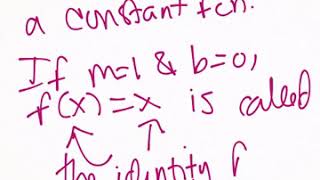 a constant fcn.
If m=1 & b=0,
f(x)=x is called
the identity f